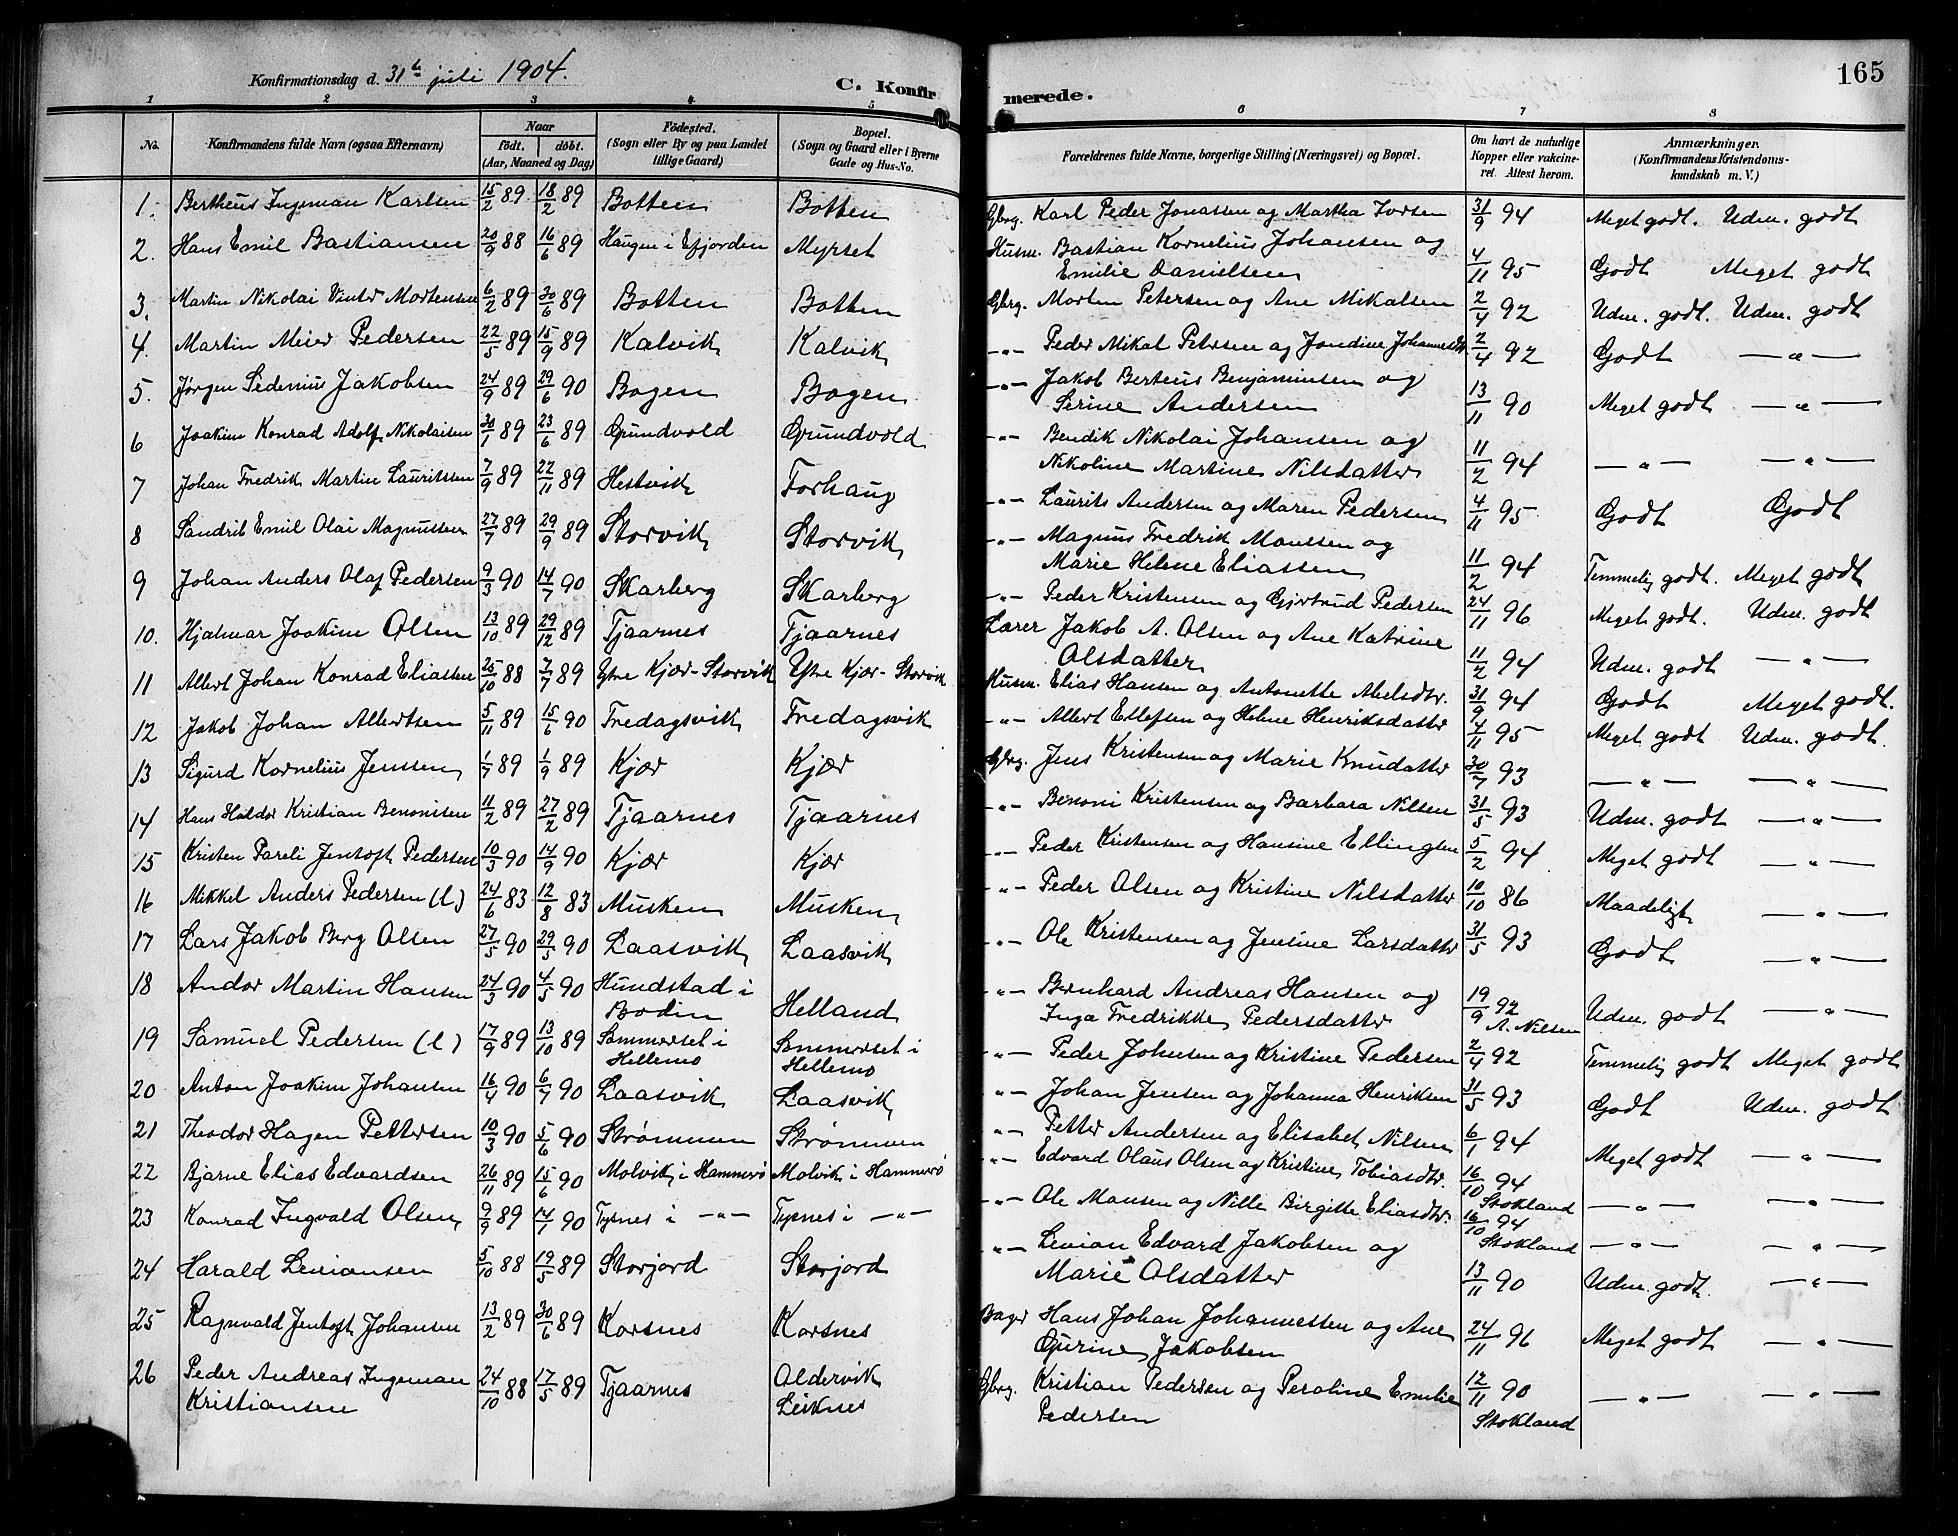 Konfirmationsdag d. 31te juli 1904.
C. Konfirmerede.
165
1 2 3 4 5 6 7 8
No. Konfirmandens fulde Navn (ogsaa Efternavn) Naar født. døbt. (Aar, Maaned og Dag) Födested. (Sogn eller By og paa Landet tillige Gaard) Bopæl. (Sogn og Gaard eller i Byerne Gade og Hus-No. Forældrenes fulde Navne, borgerlige Stilling (Næringsvei) og Bopæl. Om havt de naturlige Kopper eller vakcineret. Attest herom. Anmærkninger. (Konfirmandens Kristendomskundskab m. V.)
1. Bertheus Ingeman Karlsen 15/2 89 18/2 89 Botten Botten Gbrg. Karl Peder Jonassen og Martha Ivdsen 31/9 94 Meget godt. Udm. godt
2. Hans Emil Bastiansen 20/9 88 16/6 89 Haugen i Efjorden Myrset Husm. Bastian Kornelius Johansen og
Emilie Danielsen 4/11 95 Godt Meget godt
3. Martin Nikolai Vinter Mortensen 6/2 89 30/6 89 Botten Botten Gbrg. Morten Petersen og Ane Mikalsen 2/4 92 Udm. godt. Udm. godt
4. Martin Meier Pedersen 22/5 89 15/9 89 Kalvik Kalvik -"- Peder Mikal Petersen og Jondine Johannesdtr 2/4 92 Godt -"-
5. Jørgen Sedenius Jakobsen 24/9 89 29/6 90 Bogen Bogen -"- Jakob Berteus Benjaminsen og
Serine Andersen 13/11 90 Meget godt -"-
6 Joakim Konrad Adolf Nikolaisen 30/1 89 23/6 89 Grundvold Grundvold -"- Bendik Nikolai Johansen og
Nikoline Martine Nilsdatter 11/2 94 -"- -"-
7 Johan Fredrik Martin Lauritssen 7/9 89 22/11 89 Hestvik Forhaug -"- Laurits Andersen og Maren Pedersen 4/11 95 Godt Godt
8 Sandrib Emil Olai Magnussen 27/7 89 29/9 89 Storvik Storvik -"- Magnus Fredrik Monssen og
Marie Helene Eliassen 11/2 94 Temmelig godt. Meget godt
9 Johan Anders Olaf Pedersen 9/3 90 14/7 90 Skarberg Skarberg -"- Peder Kristensen og Gjertrud Pedersen 24/11 96 Meget godt. Udm. godt
10. Hjalmar Joakim Olsen 13/10 89 29/12 89 Tjaarnes Tjaarnes Lærer Jakob A. Olsen og Ane Katrine
Olsdatter 11/2 94 Udm. godt -"-
11 Albert Johan Konrad Eliassen 25/10 88 7/7 89 Ytre Kjær-Storvik Ytre Kjær-Storvik Husm. Elias Hansen og Antonette Abelsdtr. 31/9 94 Godt Meget godt.
12 Jakob Johan Albertsen 5/11 89 15/6 90 Fredagsvik Fredagsvik -"- Albert Ellefsen og Helene Henriksdatter 4/11 95 Meget godt Udm. godt.
13 Sigurd Kornelius Jenssen 1/7 89 1/9 89 Kjær Kjær Gbrg. Jens Kristensen og Marie Knudatter 30/7 93 -"- -"-
14 Hans Haldor Kristian Benonisen 11/2 89 27/2 89 Tjaarnes Tjaarnes -"- Benoni Kristensen og Barbara Nilsen 31/5 93 Udm. godt -"-
15 Kristen Pareli Jentoft Pedersen 10/3 90 14/9 90 Kjær Kjær -"- Peder Kristensen og Hansine Ellingsen 5/2 94 Meget godt -"-
16 Mikkel Anders Pedersen (l) 24/6 83 12/8 83 Musken Musken -"- Peder Olsen og Kristine Nilsdatter 10/10 86 Maadeligt -"-
17 Lars Jakob Berg Olsen 27/5 90 29/5 90 Laasvik Laasvik -"- Ole Kristensen og Jensine Larsdatter 31/5 93 Godt -"-
18 Andor Martin Hansen 24/3 90 4/5 90 Hundstad i
Bodin Helland -"- Bernhard Andreas Hansen og
Inga Fredrikke Pedersdatter 19/9 92 A. Nilsen Udm. godt -"-
19 Samuel Pedersen (l) 17/9 89 13/10 89 Sommerset i
Hellemo Sommerset i
Hellemo -"- Peder Johnsen og Kristine Pedersen 2/4 92 Temmelig godt Meget godt
20 Anton Joakim Johansen 16/4 90 6/7 90 Laasvik Laasvik -"- Johan Jensen og Johanna Henriksen 31/5 93 Godt Udm. godt
21 Theodor Hagen Pettersen 10/3 90 5/6 90 Strømmen Strømmen -"- Petter Andersen og Elisabet Nilsen 6/1 94 Meget godt -"-
22 Bjarne Elias Edvardsen 26/11 89 15/6 90 Molvik i Hammerø Molvik i Hammerø -"- Edvard Olaus Olsen og Kristine Tobiasdtr. 16/10 94 Stokland -"- -"-
23 Konrad Ingvald Olsen 9/9 89 14/1 90 Tysnes i -"- Tysnes i -"- -"- Ole Monsen og Nille Birgitte Eliasdtr. 16/10 94 Stokland -"- -"-
24 Harald Leviansen 5/10 88 19/5 89 Storjord Storjord -"- Levian Edvard Jakobsen og
Marie Olsdatter 13/11 90 Udm. godt. -"-
25 Ragnvald Jentoft Johansen 13/2 89 30/6 89 Korsnes Korsnes Bager Hans Johan Johannessen og Ane
Gurine Jakobsen 24/11 96 Meget godt -"-
26 Peder Andreas Ingeman
Kristiansen 24/10 88 17/5 89 Tjaarnes Aldervik
Leiknes Gbrg. Kristian Pedersen og Peroline Emilie
Pedersen 12/11 90 Stokland -"- -"-